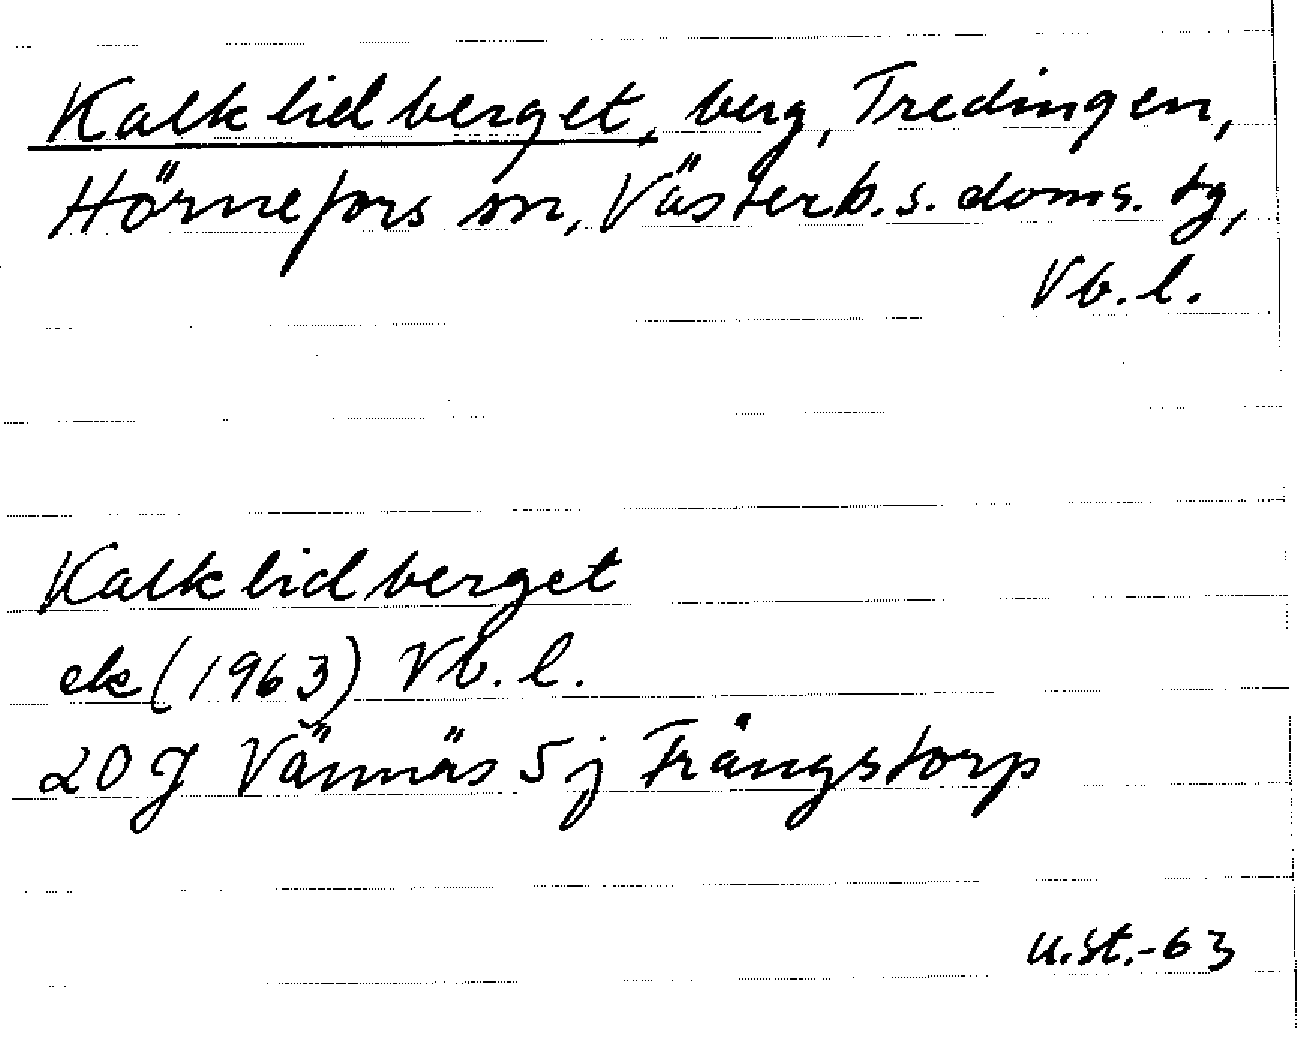 Kalklidberget, berg, Tredingen,
Hörnefors sn, Västerb. s. doms. tg,
Vb. l.
Kalklidberget
ek (1963) Vb. l.
20 J Vännäs 5 j Trångstorp
u.st.-63